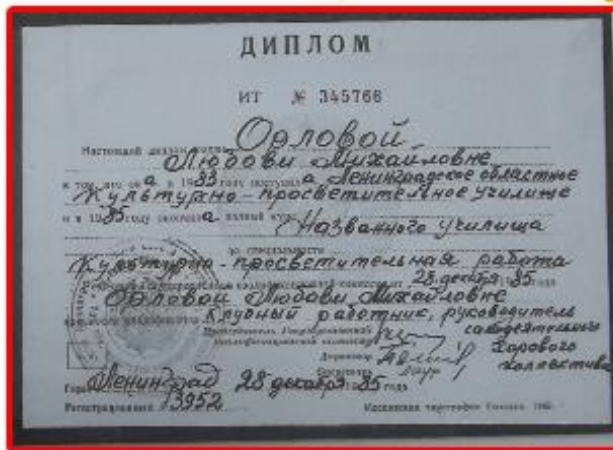 ДИПЛОМ
ИТ № 345766
Настоящий диплом выдан Орловой
Любови Михайловне
в том, что она в 1983 году поступила в Ленинградское областное
культурно-просветительное училище
и в 1985 году окончила полный курс
названного училища
по специальности
культурно-просветительная работа
комиссии от 28 декабря 1985 года
Орловой Любови Михайловне
Клубный работник, руководитель
Председатель Государственной самодеятельного
квалификационной комиссии хорового
Директор коллектива
Секретарь
Город Ленинград 28 декабря 1985 года
Регистрационный № 13952
Московская типография Гознака. 198